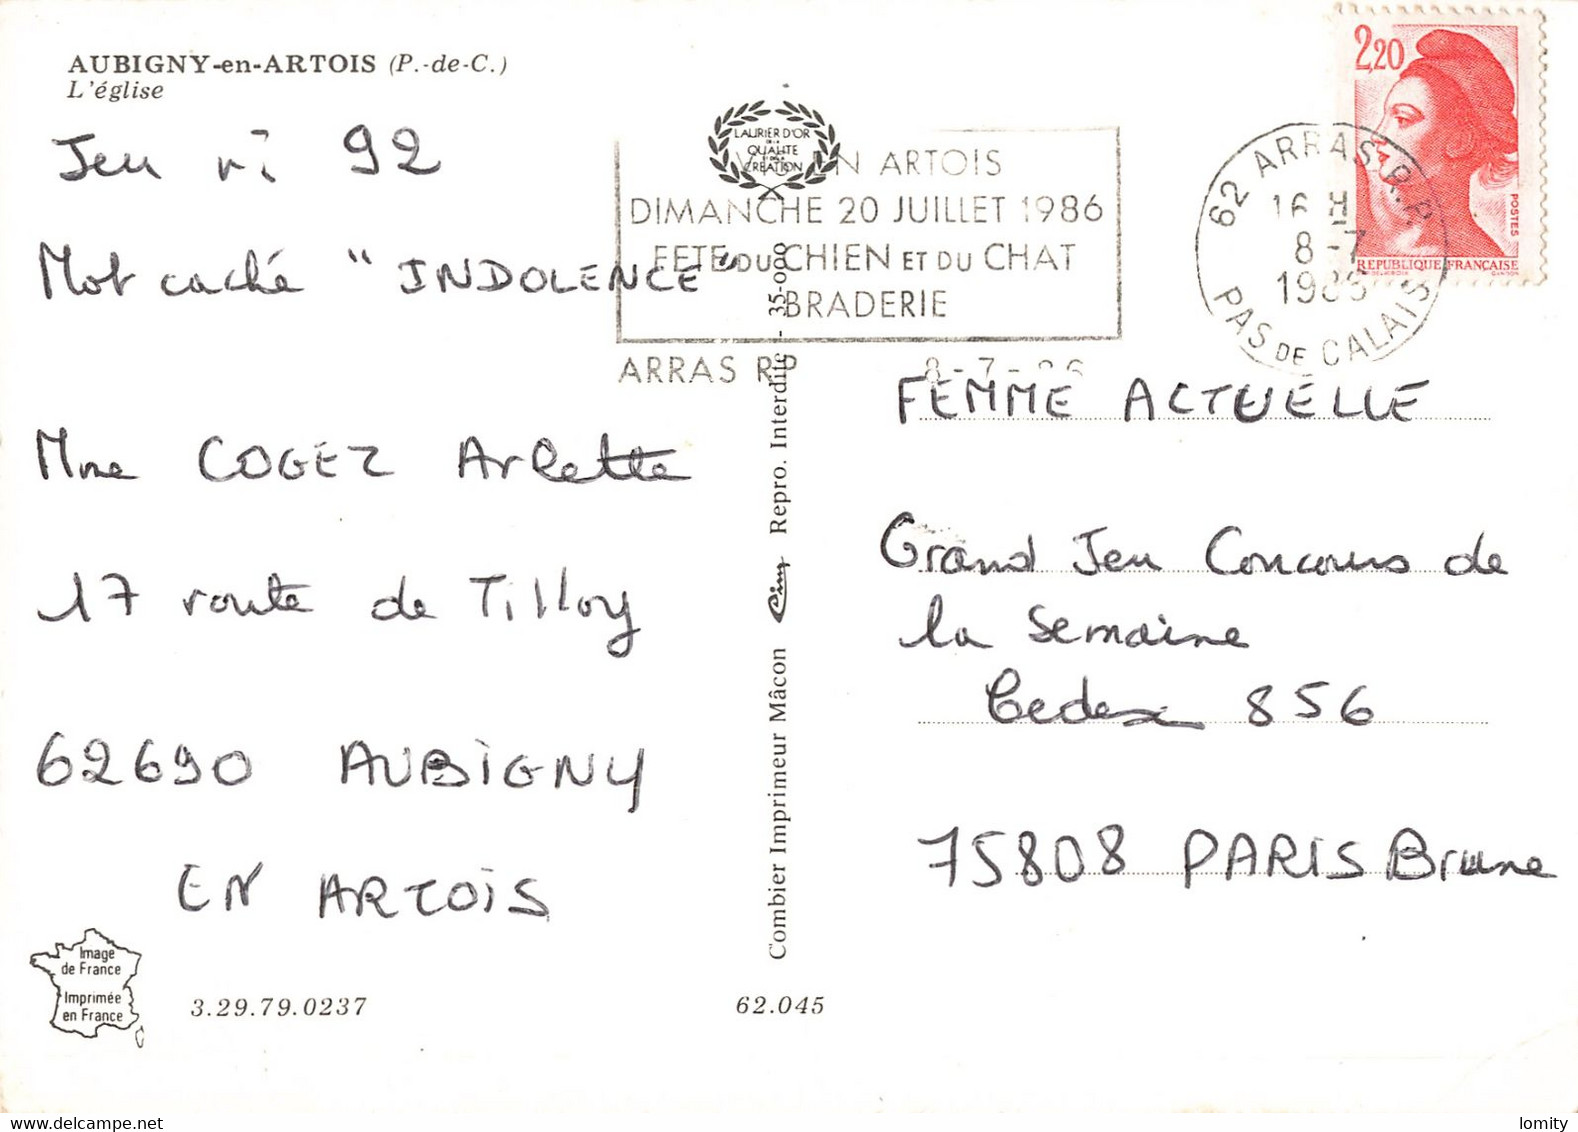 AUBIGNY-en-ARTOIS (P.-de-C.)
L'église
Jeu n° 92
Mot caché "INDOLENCE"
Mme COGEZ Arlette
17 route de Tilloy
62690 AUBIGNY
EN ARTOIS
Image
de France
Imprimée
en France
3.29.79.0237
62.045
LAURIER D'OR
DE LA
QUALITE
CREATION
EN ARTOIS
DIMANCHE 20 JUILLET 1986
FETE DU CHIEN ET DU CHAT
BRADERIE
ARRAS RP 8-7-86
Combier Imprimeur Mâcon Cim Repro. Interdite - 35-000
62 ARRAS R.P.
16 H
8-7
1986
PAS DE CALAIS
2,20
POSTES
REPUBLIQUE FRANÇAISE
FEMME ACTUELLE
Grand Jeu Concours de
la semaine
Cedex 856
75808 PARIS Brune
www.delcampe.net
lomity